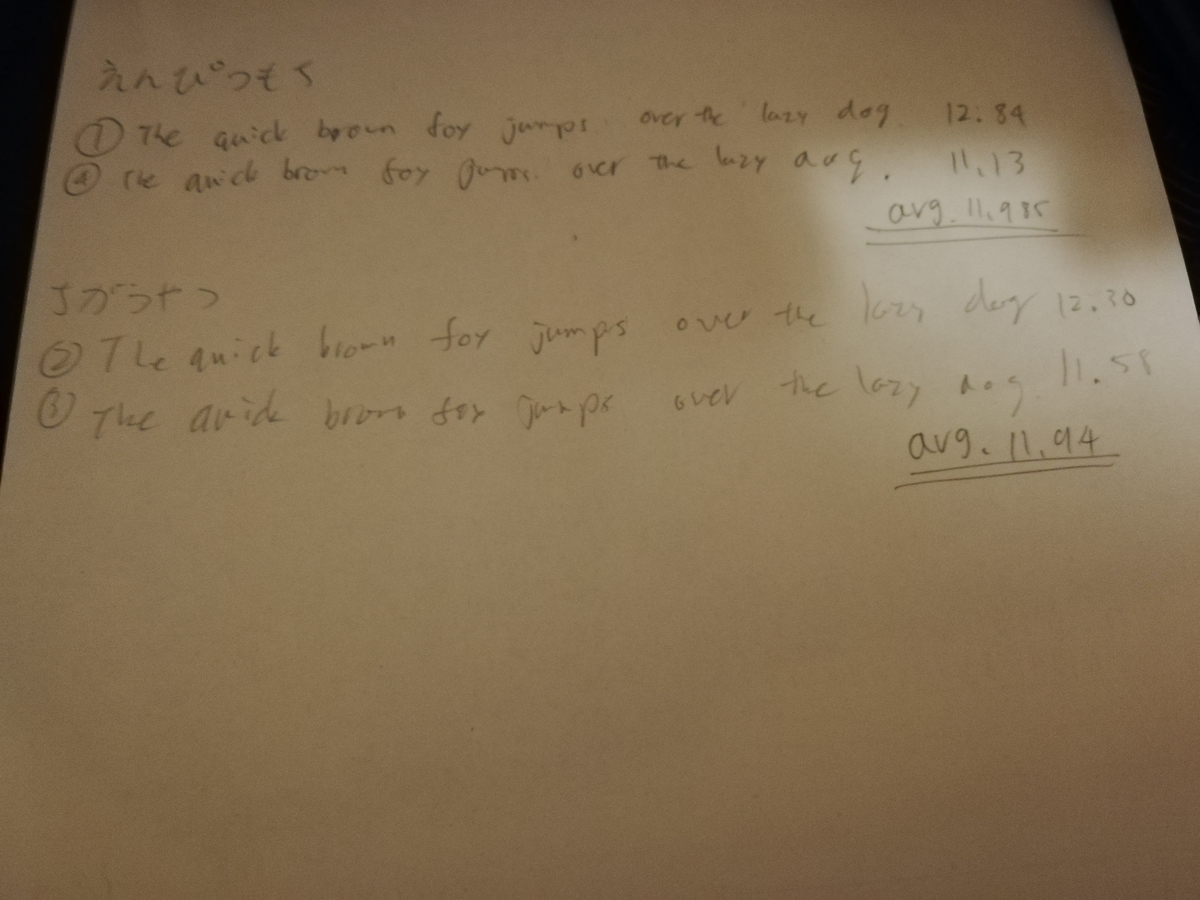 えんぴつもち
① The quick brown fox jumps over the lazy dog. 12:84
④ The quick brown fox jumps over the lazy dog. 11.13
avg. 11.985
② The quick brown fox jumps over the lazy dog 12.30
③ The quick brown fox jumps over the lazy dog. 11.58
avg. 11.94